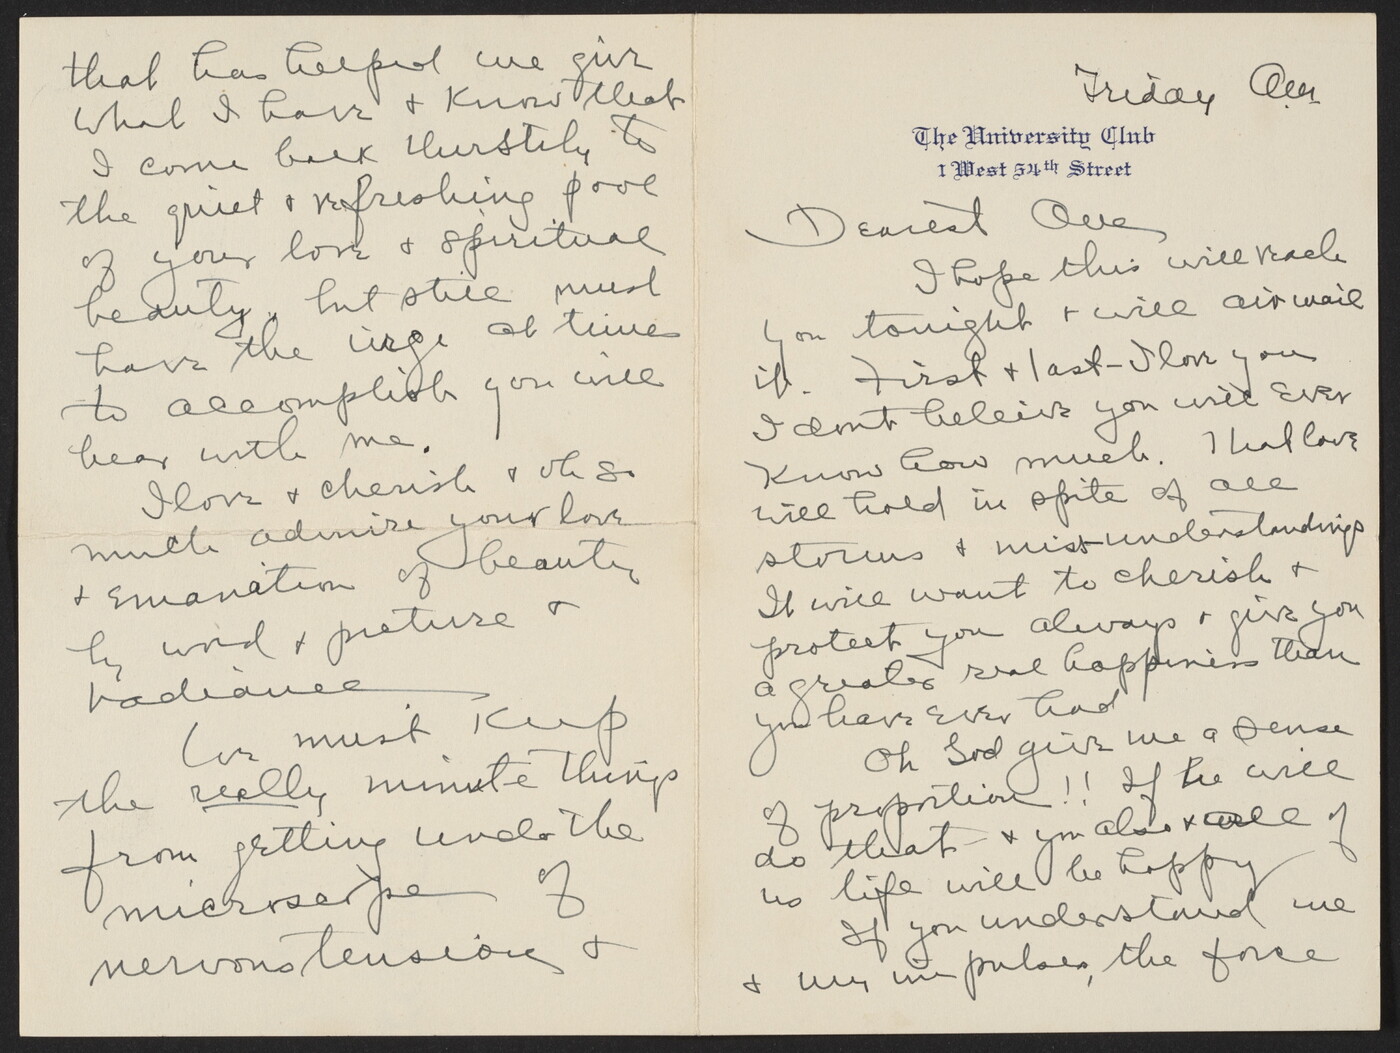 Friday
The University Club
1 West 54th Street
Dearest One
I hope this will reach
you tonight & will air mail
it. First & last - I love you
I dont beleive you will ever
Know how much. That love
will hold in spite of all
storms & miss understandings
It will want to cherish &
protect you always & give you
a greater real happiness than
you have ever had
Oh God give me a sense
of proportion!! If he will
do that - & you also & all of
us life will be happy
If you understand me
& my impulses, the force
that has helped me give
what I have & Know that
I come back thirstily to
the quiet & refreshing pool
of your love & spiritual
beauty, but still must
have the urge at times
to accomplish you will
bear with me.
I love & cherish & oh so
much admire your love
& emanation of beauty
by word & picture &
radiance
We must Keep
the really minute things
from getting under the
microscope of
nervous tension &